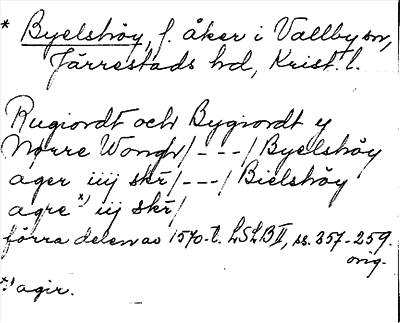 * Byelshöy, f. åker i Vallby sn,
Järrestads hd, Krist. l.
Rugiordt och Bygiordt y
Nørre Wongh/ - - - / Byelshöy
ager iiij skr/ - - - / Bielshöy
agre x) iij skr/
förra delen av 1570-t. LSLB II, ss. 257-259.
orig.
x) agir.